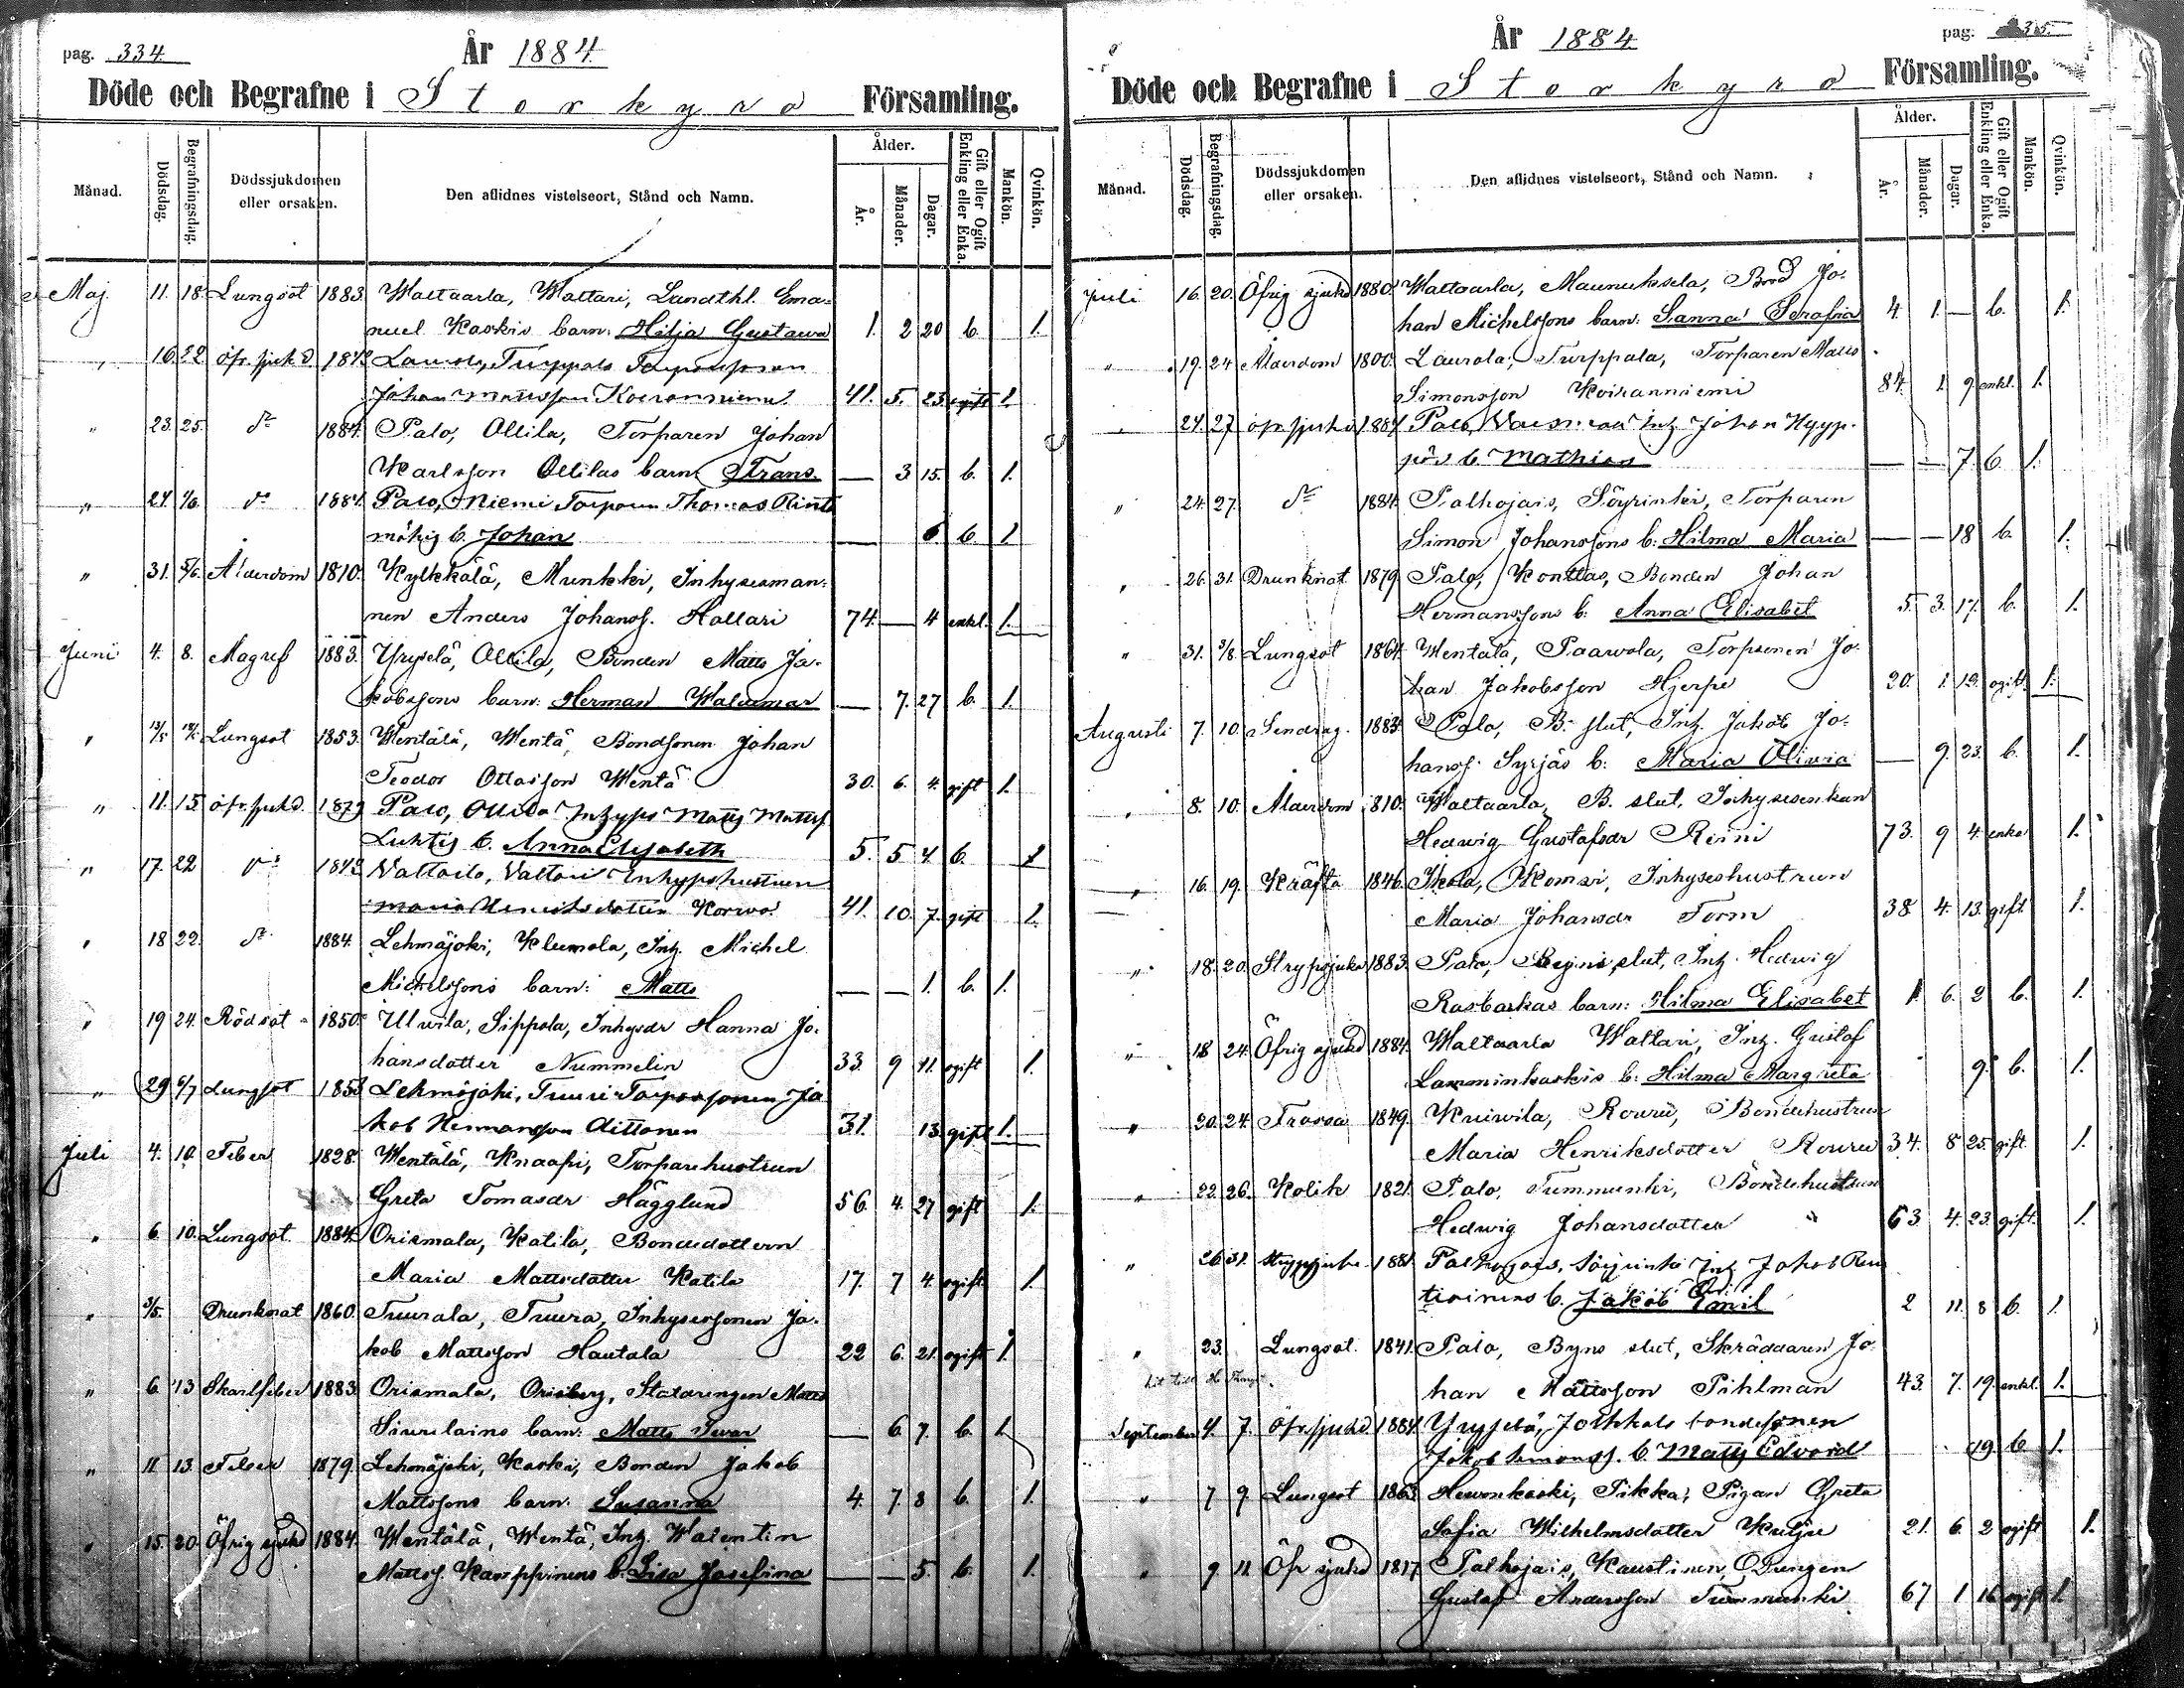 pag. 334.
År 1884.
Döde och Begrafne i Storkyro Församling.
Månad.
Dödsdag.
Begrafningsdag.
Dödssjukdomen
eller orsaken.
Den aflidnes vistelseort, Stånd och Namn.
Ålder.
År.
Månader.
Dagar.
Gift eller Ogift
Enkling eller Enka.
Mankön.
Qvinkön.
Maj. 11. 18. Lungsot 1883. Waltaarla, Waltari, Landthl. Ema-
nuel Kaskis barn: Hilja Gustava 1. 2 20 b. 1.
" 16. 22 öfr. sjukd. 1842 Laurola, Turppala
Johan Mattsson Koiranniemi 41. 5. 23. gift 1.
" 23. 25. do 1884. Palo, Ollila, Torparen Johan
Karlsson Ollilas barn Frans — 3 15. b. 1.
" 24. 1/6. do 1884. Palo, Niemi Torparen Thomas Rinta
mäkis b. Johan — 6. b. 1
" 31. 5/6. Ålderdom 1810. Kylkkälä, Munkki, Inhysesman-
nen Anders Johanss. Hallari 74. — 4 enkl. 1.
Juni 4. 8. Magref 1883. Yryselä, Ollila, Bonden Matts Ja-
kobssons barn: Herman Waldemar — 7. 27 b. 1.
" Lungsot 1853. Wentälä, Wentä, Bondsonen Johan
Teodor Ottasson Wentä 30. 6. 4. gift 1.
" 11. 15 öfr. sjukd. 1879 Palo, Ollila Inhyses Matts Mattss.
Luhtis b. Anna Elisabeth 5. 5 4 b. 1
" 17. 22 do 1842 Valtaala, Valtari Inhyseshustrun
Maria Henriksdotter Korvo 41. 10. 7. gift 1.
" 18 22. do 1884. Lehmäjoki, Klemola, Inh. Michel
Michelssons barn: Matts — — 1. b. 1.
" 19 24. Rödsot 1850. Ulvila, Sippola, Inhysdr Hanna Jo-
hansdotter Nummelin 33. 9 11. ogift 1.
" 29 6/7 Lungsot 1853 Lehmäjoki, Tuuri Torparsonen Ja
kob Hermansson Aittonen 31. 13. gift 1.
Juli 4. 10. Feber 1828. Wentälä, Knaapi, Torparehustrun
Greta Tomasdr Hägglund 56. 4. 27 gift 1.
" 6 10. Lungsot 1884. Orismala, Katila, Bondedottern
Maria Mattsdotter Katila 17. 7 4. ogift 1.
" 3/5. Drunknat 1860. Tuurala, Tuura, Inhysessonen Ja-
kob Mattsson Hautala 22 6. 21. ogift 1.
" 6 13 Skarlfeber 1883. Orismala, Orisberg, Statdrengen Matts
Siurulains barn: Matts Ivar — 6 7. b. 1.
" 11 13. Feber 1879. Lehmäjoki, Kaski, Bonden Jakob
Mattssons barn: Susanna 4. 7. 8 b. 1.
" 15. 20. Öfrig sjukd 1884. Wentälä, Wentä, Inh. Walentin
Mattss. Karppinens b. Lisa Josefina — — 5. b. 1.
pag. 335.
År 1884
Döde och Begrafne i Storkyro Församling.
Månad.
Dödsdag.
Begrafningsdag.
Dödssjukdomen
eller orsaken.
Den aflidnes vistelseort, Stånd och Namn.
Ålder.
År.
Månader.
Dagar.
Gift eller Ogift
Enkling eller Enka.
Mankön.
Qvinkön.
Juli 16. 20. Öfrig sjukd 1880. Waltaarla, Maunuksela, Bond Jo-
han Michelssons barn: Sanna Serafia 4. 1. — b. 1.
" 19. 24 Ålderdom 1800. Laurola, Turppala, Torparen Matts
Simonsson Koiranniemi 84. 1. 9 enkl. 1.
" 24. 27 öfr. sjukd 1884 Palo, Inh Johan Hyyp-
päs b. Mathias — — 7. b. 1.
" 24. 27. do 1884. Palhojais, Söyrinki, Torparen
Simon Johanssons b: Hilma Maria — — 18 b. 1.
" 26. 31. Drunknat 1879. Palo, Konttas, Bonden Johan
Hermanssons b: Anna Elisabet 5. 3. 17. b. 1.
" 31. 3/8. Lungsot 1864. Wentälä, Paavola, Torpsonen Jo-
han Jakobsson Hjerpe 20. 1. 12. ogift 1.
Augusti 7. 10. Sendrag. 1883. Palo, B. slut, Inh. Jakob Jo-
hanss. Syrjäs b: Maria Olivia — 9. 23. b. 1.
" 8. 10. Ålderdom 1810. Waltaarla, B. slut, Inhysesenkan
Hedwig Gustafsdr Reini 73. 9 4 enka 1.
" 16. 19. Kräfta 1846. Ikola, Komsi, Inhyseshustrun
Maria Johansdr Torm 38. 4. 13. gift. 1.
" 18. 20. Strypsjuka 1883. Palo, Byns slut, Inh. Hedwig
Rasbackas barn: Hilma Elisabet 1. 6. 2 b. 1.
" 18 24. Öfrig sjukd 1884. Waltaarla Waltari, Inh. Gustaf
Lamminkaskis b: Hilma Margreta 9. b. 1.
" 20. 24. Trossa 1849. Kuivila, Rouru, Bondehustrun
Maria Henriksdotter Rouru 34. 8 25. gift 1.
" 22. 26. Kolik 1821. Palo, Tummunki, Bondehustrun
Hedwig Johansdotter " 63. 4. 23. gift. 1.
" 26 31. Strypsjuka 1881. Palhojais, Söyrinki Inh Jakob
b. Jakob Emil 2 11. 8 b. 1.
" 23. Lungsot. 1841. Palo, Byns slut, Skräddaren Jo-
han Mattsson Pihlman 43. 7. 19. enkl. 1.
September 4. 7. Öfr. sjukd. 1884. Yryselä, bondesonen
Jakob Simonss. b. Matts Edvard 19. b. 1.
" 7 9. Lungsot 1863. Hevonkoski, Pikka, Pigan Greta
Sofia Wilhelmsdotter Kuljus 21. 6. 2 ogift 1.
" 9 11 Öfr sjukd 1817 Palhojais, Kaustinen, Drengen
Gustaf Andersson Tummunki 67 1 16 ogift 1.